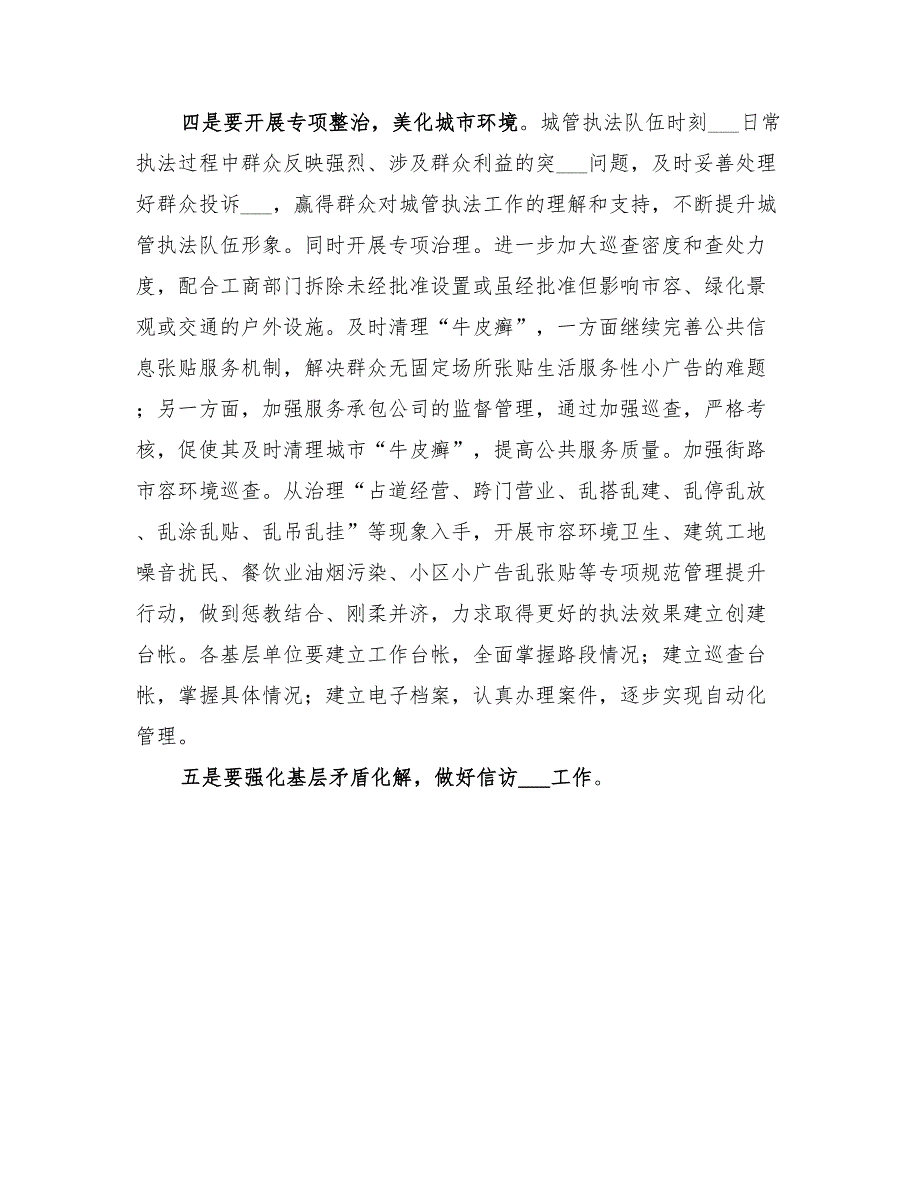 四是要开展专项整治，美化城市环境。城管执法队伍时刻___日常
执法过程中群众反映强烈、涉及群众利益的突___问题，及时妥善处理
好群众投诉___，赢得群众对城管执法工作的理解和支持，不断提升城
管执法队伍形象。同时开展专项治理。进一步加大巡查密度和查处力
度，配合工商部门拆除未经批准设置或虽经批准但影响市容、绿化景
观或交通的户外设施。及时清理“牛皮癣”，一方面继续完善公共信
息张贴服务机制，解决群众无固定场所张贴生活服务性小广告的难题
；另一方面，加强服务承包公司的监督管理，通过加强巡查，严格考
核，促使其及时清理城市“牛皮癣”，提高公共服务质量。加强街路
市容环境巡查。从治理“占道经营、跨门营业、乱搭乱建、乱停乱放
、乱涂乱贴、乱吊乱挂”等现象入手，开展市容环境卫生、建筑工地
噪音扰民、餐饮业油烟污染、小区小广告乱张贴等专项规范管理提升
行动，做到惩教结合、刚柔并济，力求取得更好的执法效果建立创建
台帐。各基层单位要建立工作台帐，全面掌握路段情况；建立巡查台
帐，掌握具体情况；建立电子档案，认真办理案件，逐步实现自动化
管理。
五是要强化基层矛盾化解，做好信访___工作。